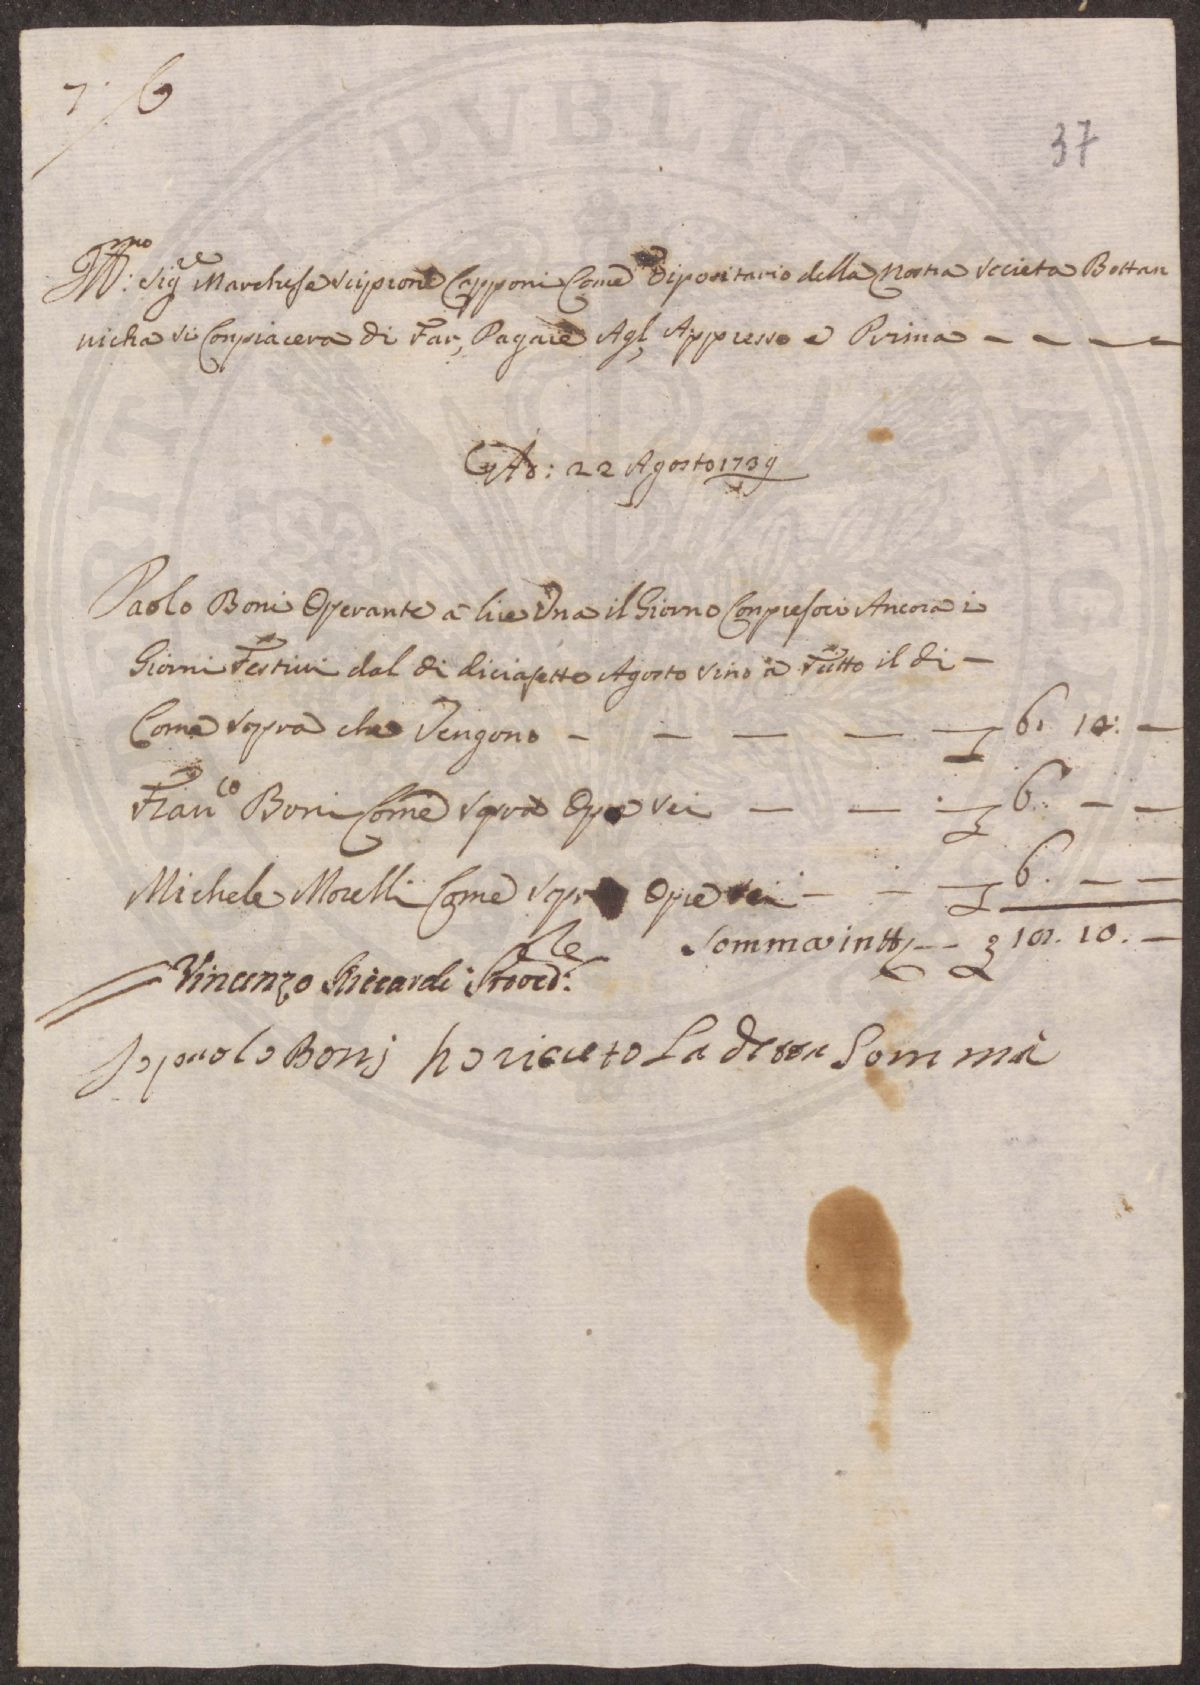 7: 6
37
Ill:mo Sig:re Marchese Scipione Capponi Come Dipositario della Nostra Società Bottan
nicha Si Conpiacera di Far, Pagare Agl, Appresso e Prima
Ad: 22 Agosto 1739
Paolo Boni Operante a lire Una il Giorno Conpresoci Ancora i
Giorni Festivi dal di diciasette Agosto Sino a Tutto il di
Come Sopra che Vengono 6. 10:
Fran:co Boni Come Sopra Opre Sei 6.
Michele Morelli Come Sopra Opre Sei 6.
Somma in tt,
10.
Vincenzo Riccardi Proved:re
Io paolo Boni ho riceuto La detta Somma